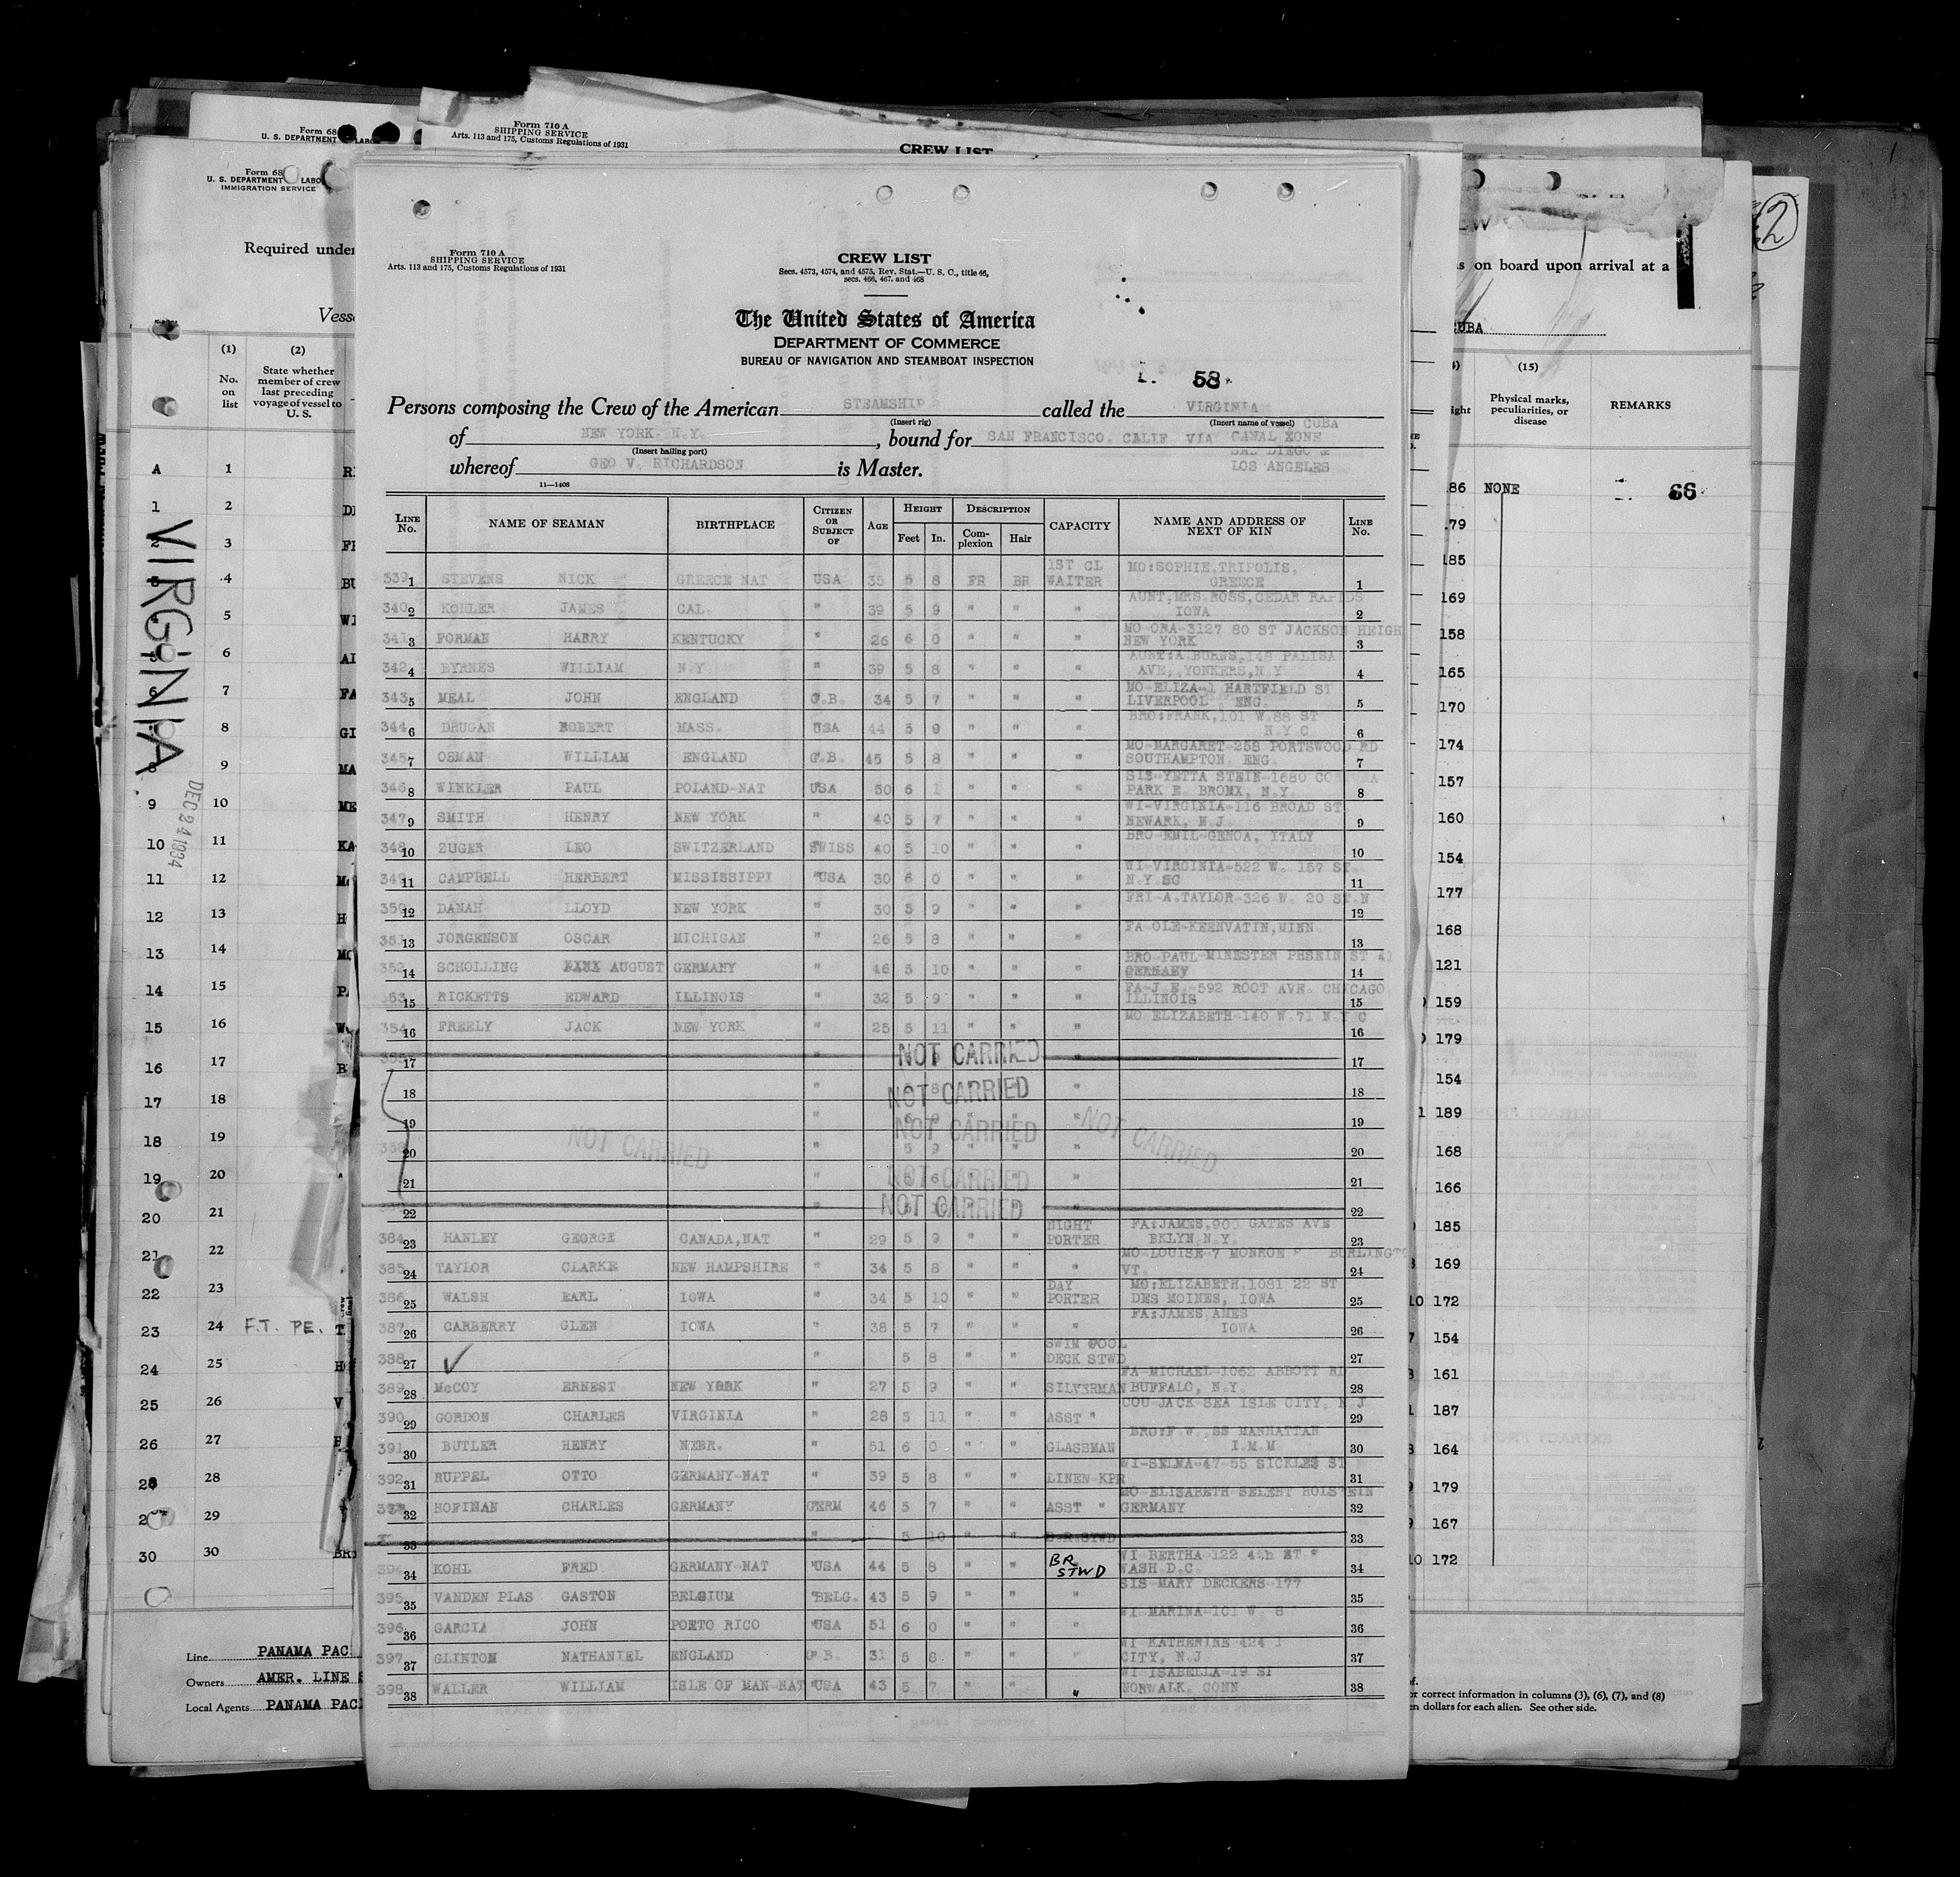 Form 68
U. S. DEPARTMENT LABO
Form 710 A
SHIPPING SERVICE
Arts. 113 and 175, Customs Regulations of 1931
CREW LIST
Form 68
U. S. DEPARTMENT LABO
IMMIGRATION SERVICE
Required under
Vess
(1) (2)
No. on list
State whether member of crew last preceding voyage of vessel to U. S.
A 1
1 2
2 3
3 4
5
6
6 7
8
9
9 10
10 11
11 12
12 13
13 14
14 15
15 16
16 17
17 18
18 19
19 20
20 21
21 22
22 23
23 24 F.T. PE.
24 25
25 26
26 27
28 28
29
30 30
VIRGINIA
DEC 24 1934
Line PANAMA PAC
Owners AMER. LINE S
Local Agents PANAMA PACI
Form 710 A
SHIPPING SERVICE
Arts. 113 and 175, Customs Regulations of 1931
CREW LIST
Secs. 4573, 4574, and 4575, Rev. Stat.—U. S. C., title 46,
secs. 466, 467, and 468
The United States of America
DEPARTMENT OF COMMERCE
BUREAU OF NAVIGATION AND STEAMBOAT INSPECTION
58
Persons composing the Crew of the American STEAMSHIP called the VIRGINIA
(Insert rig) (Insert name of vessel) CUBA
of NEW YORK. N.Y. , bound for SAN FRANCISCO. CALIF VIA CANAL ZONE
(Insert hailing port) SAN DIEGO &
whereof GEO V. RICHARDSON is Master. LOS ANGELES
11—1408
LINE No. NAME OF SEAMAN BIRTHPLACE CITIZEN OR SUBJECT OF AGE HEIGHT Feet In. DESCRIPTION Complexion Hair CAPACITY NAME AND ADDRESS OF NEXT OF KIN LINE No.
339 1 STEVENS NICK GREECE NAT USA 35 5 8 FR BR 1ST CL WAITER MO:SOPHIE,TRIPOLIS, GREECE 1
340 2 KOHLER JAMES CAL. " 39 5 9 " " " AUNT,MRS.ROSS,CEDAR RAPIDS IOWA 2
341 3 FORMAN HARRY KENTUCKY " 26 6 0 " " " MO ORA-3127 80 ST JACKSON HEIGH NEW YORK 3
342 4 BYRNES WILLIAM N.Y " 39 5 8 " " " AUNT:A.BURNS,148 PALISA AVE, YONKERS,N.Y 4
343 5 MEAL JOHN ENGLAND G.B. 34 5 7 " " " MO-ELIZA-1 HARTFIELD ST LIVERPOOL ENG. 5
344 6 DRUGAN ROBERT MASS. USA 44 5 9 " " " BRO:FRANK,101 W.88 ST N Y C 6
345 7 OSMAN WILLIAM ENGLAND G.B. 45 5 8 " " " MO-MARGARET-258 PORTSWOOD RD SOUTHAMPTON. ENG. 7
346 8 WINKLER PAUL POLAND-NAT USA 50 6 1 " " " SIS-YETTA STEIN-1680 PARK E. BRONX, N.Y. 8
347 9 SMITH HENRY NEW YORK " 40 5 7 " " " WI-VIRGINIA-116 BROAD ST NEWARK, N.J 9
348 10 ZUGER LEO SWITZERLAND SWISS 40 5 10 " " " BRO-EMIL-GENOA, ITALY 10
349 11 CAMPBELL HERBERT MISSISSIPPI "USA 30 6 0 " " " WI-VIRGINIA-522 W. 157 ST. N.Y. 11
350 12 DANAH LLOYD NEW YORK " 30 5 9 " " " FRI-A.TAYLOR-326 W. 20 ST.N 12
351 13 JORGENSON OSCAR MICHIGAN " 26 5 8 " " " FA OLE-KEEWATIN,MINN 13
352 14 SCHOLLING AUGUST GERMANY " 46 5 10 " " " BRO-PAUL-MINESTER PHSEIN ST 41 GERMANY 14
353 15 RICKETTS EDWARD ILLINOIS " 32 5 9 " " " FA-J.E.-592 ROOT AVE. CHICAGO ILLINOIS 15
354 16 FREELY JACK NEW YORK " 25 5 11 " " " MO ELIZABETH-140 W.71 N.Y C 16
17 " NOT CARRIED " 17
18 " NOT CARRIED " 18
19 " NOT CARRIED " 19
20 NOT CARRIED " 5 9 " " " NOT CARRIED 20
21 " NOT CARRIED " 21
22 " NOT CARRIED " 22
384 23 HANLEY GEORGE CANADA,NAT " 29 5 9 " " NIGHT PORTER FA:JAMES,900 GATES AVE BKLYN,N.Y. 23
385 24 TAYLOR CLARKE NEW HAMPSHIRE " 34 5 8 " " " MO-LOUISE-7 MONROE BURLINGTO VT. 24
386 25 WALSH EARL IOWA " 34 5 10 " " DAY PORTER MO:ELIZABETH,1081 22 ST DES MOINES, IOWA 25
387 26 CARBERRY GLEN IOWA " 38 5 7 " " " FA:JAMES,AMES IOWA 26
388 27 ✓ " 5 8 " " SWIM POOL DECK STWD 27
389 28 McCOY ERNEST NEW YORK " 27 5 9 " " SILVERMAN FA-MICHAEL-1062 ABBOTT RD BUFFALO, N.Y. 28
390 29 GORDON CHARLES VIRGINIA " 28 5 11 " " ASST " COU-JACK-SEA ISLE CITY, N J 29
391 30 BUTLER HENRY NEBR. " 51 6 0 " " GLASSMAN BRO:F.W. SS MANHATTAN I.M.M 30
392 31 RUPPEL OTTO GERMANY-NAT " 39 5 8 " " LINEN-KPR WI-SELMA-47-55 SICKLES ST 31
393 32 HOFINAN CHARLES GERMANY GERM 46 5 7 " " ASST " MO ELISABETH SELEHT HOLSTEIN GERMANY 32
33 " 5 10 " " B.R.STWD 33
394 34 KOHL FRED GERMANY-NAT "USA 44 5 8 " " BR. STWD WI BERTHA-122 4th ST WASH D.C. 34
395 35 VANDEN PLAS GASTON BELGIUM "BELG. 43 5 9 " " " SIS-MARY DECKERS-177 35
396 36 GARCIA JOHN PORTO RICO "USA 51 6 0 " " " WI MARINA-101 W. 8 36
397 37 GLINTON NATHANIEL ENGLAND G.B. 31 5 8 " " " WI KATHERINE 424 1 CITY, N.J 37
398 38 WALLER WILLIAM ISLE OF MAN-NAT "USA 43 5 7 " " " WI ISABELLA-19 ST NORWALK. CONN 38
2
EW
on board upon arrival at a
CUBA
(15)
ight Physical marks, peculiarities, or disease REMARKS
186 NONE 66
179
185
169
158
165
170
174
157
160
154
177
168
121
159
179
154
1 189
168
166
185
169
10 172
154
161
187
164
179
167
10 172
or correct information in columns (3), (6), (7), and (8)
en dollars for each alien. See other side.